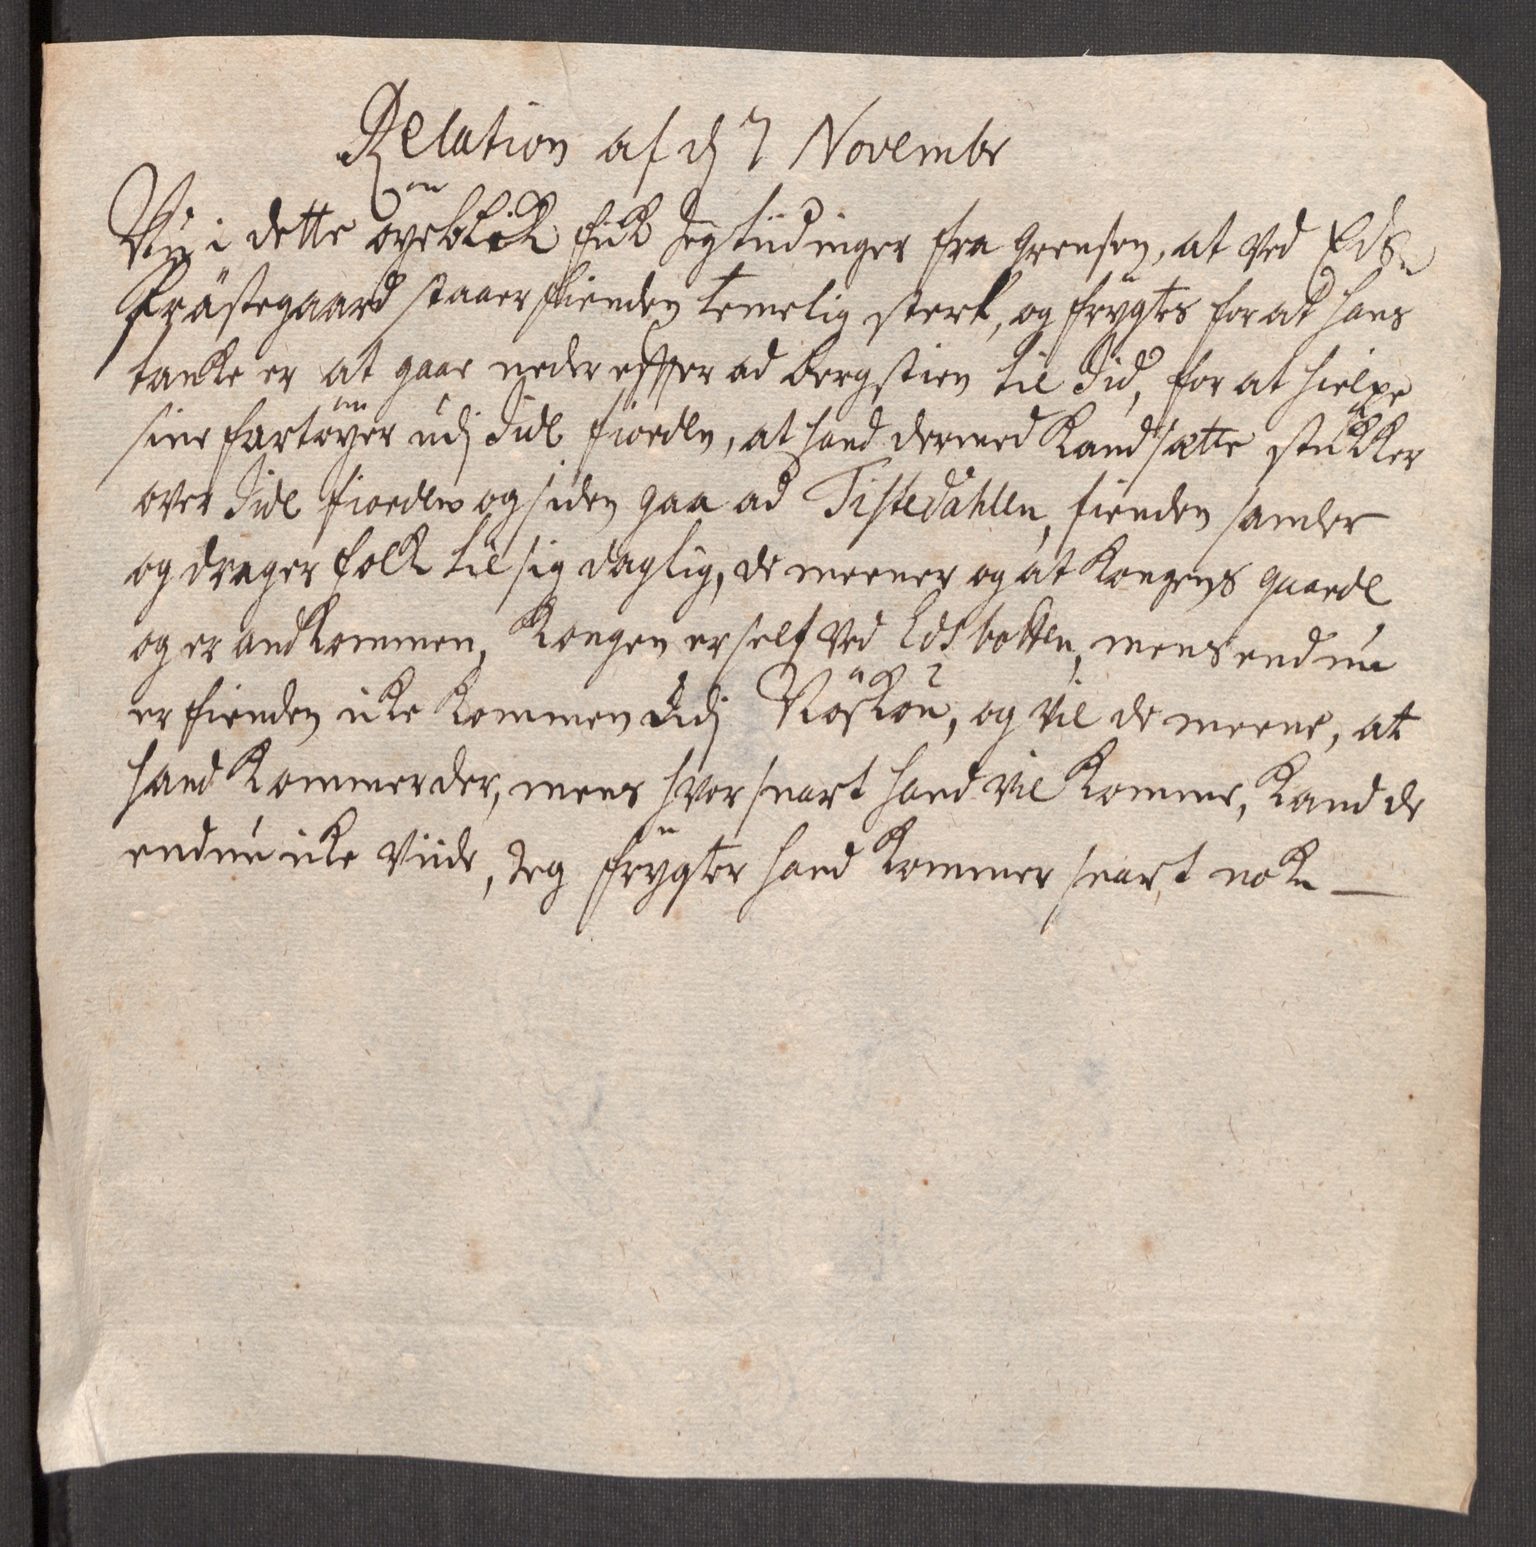 Relation af dj 7 Novembr
Nu i dette øyeblik fik Jeg tiidinger fra grensen, at ved Eds
Præstegaard staaer fienden temelig sterk, og frygtes for at hans
tanke er at gaae neder effter ad bergstien til Iid, for at hielpe
sine fartøyer udj Iide fiorden, at hand dermed kand sætte stykker
over Iide fiorden og siden gaa ad Tistedahlen, fienden samler
og drager folk til sig daglig, de meener og at kongens guarde
og er andkommen, kongen er self ved Edsbotten, mens endnu
er fienden icke kommen didj Røskou, og vil de meene, at
hand kommer der, mens hvor snart hand vil komme, kand de
endnu icke viide, Jeg frygter hand kommer snart nok —